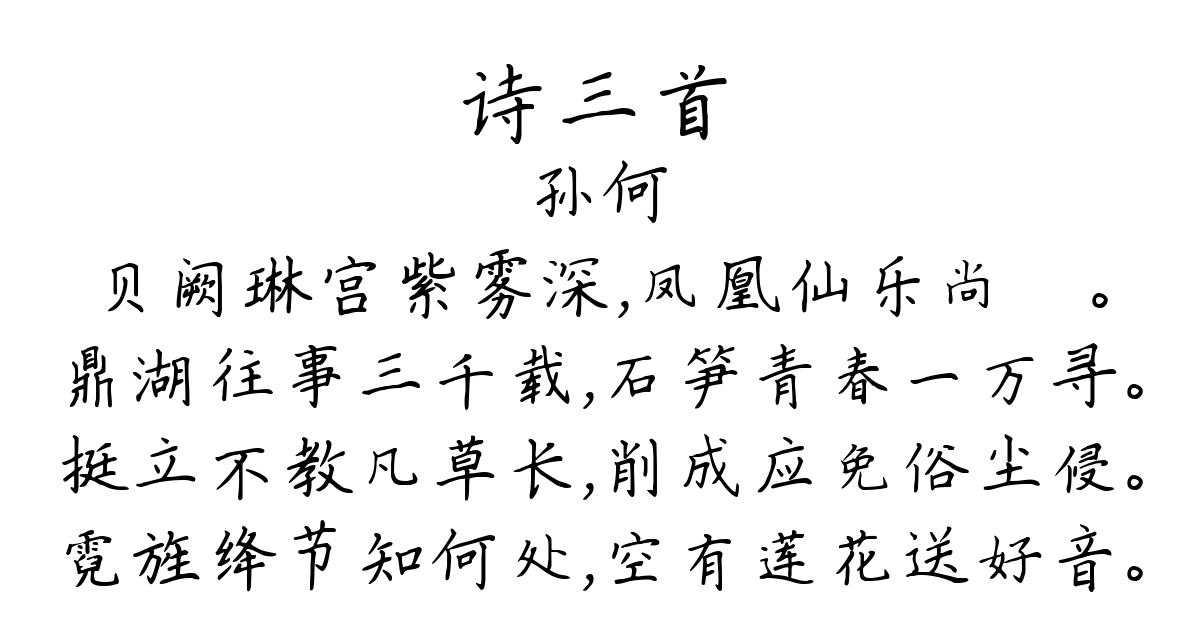 诗三首
孙何
贝阙琳宫紫雾深,凤凰仙乐尚 。
鼎湖往事三千载,石笋青春一万寻。
挺立不教凡草长,削成应免俗尘侵。
霓旌绛节知何处,空有莲花送好音。